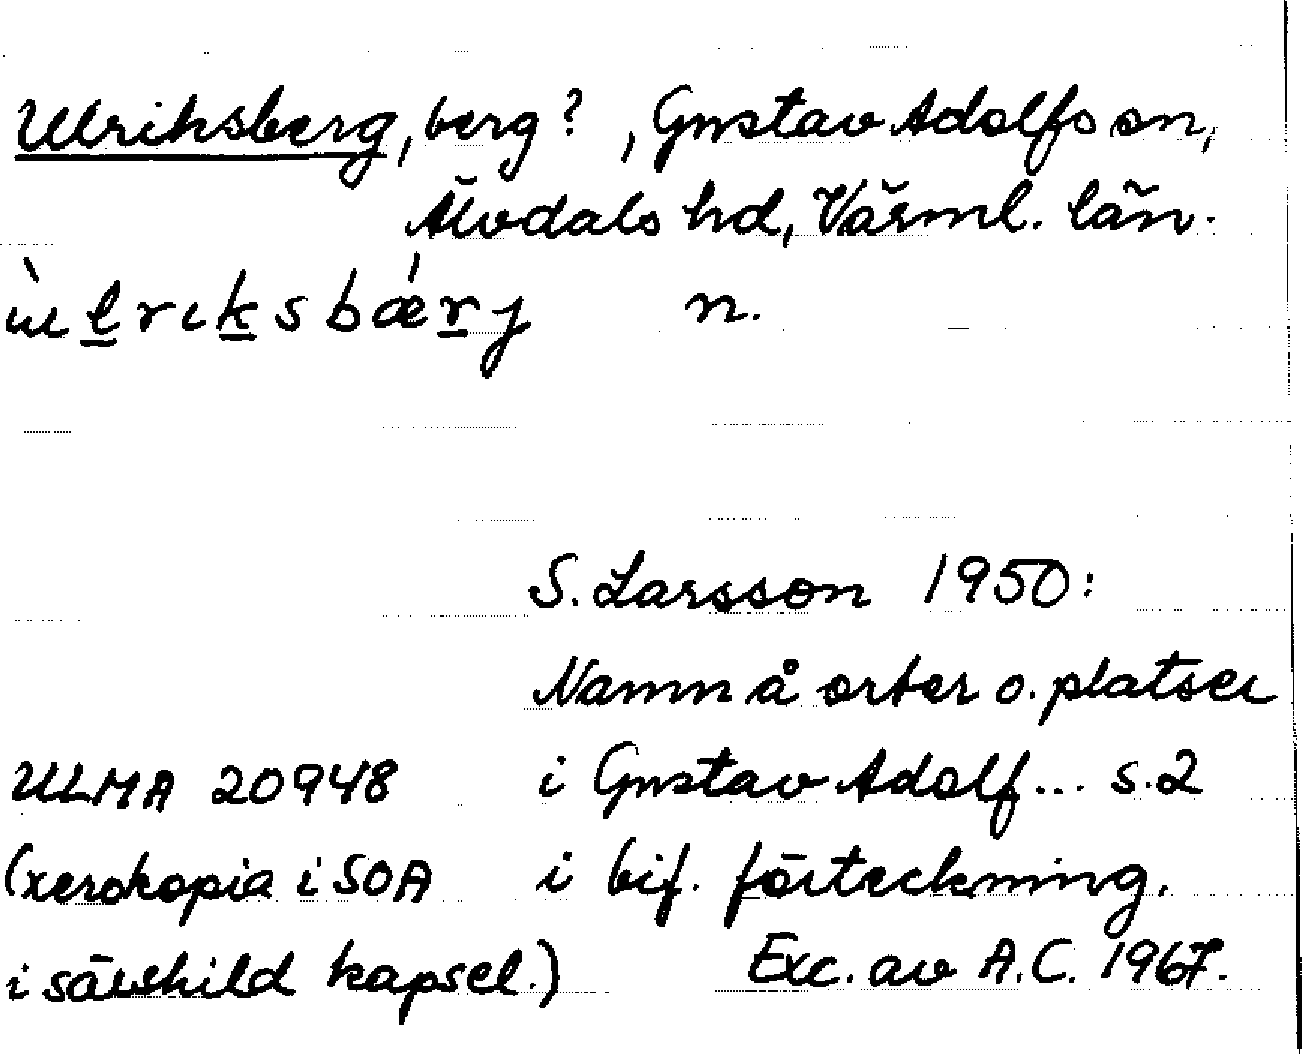 Ulriksberg, berg?, Gustav Adolfs sn,
Älvdals hd, Värml. län.
ùlrıksbǽrj n.
S. Larsson 1950:
Namn å orter o. platser
ULMA 20948 i Gustav Adolf... s.2
(xerokopia i SOA i bif. förteckning.
i särskild kapsel.) Exc. av A.C. 1967.